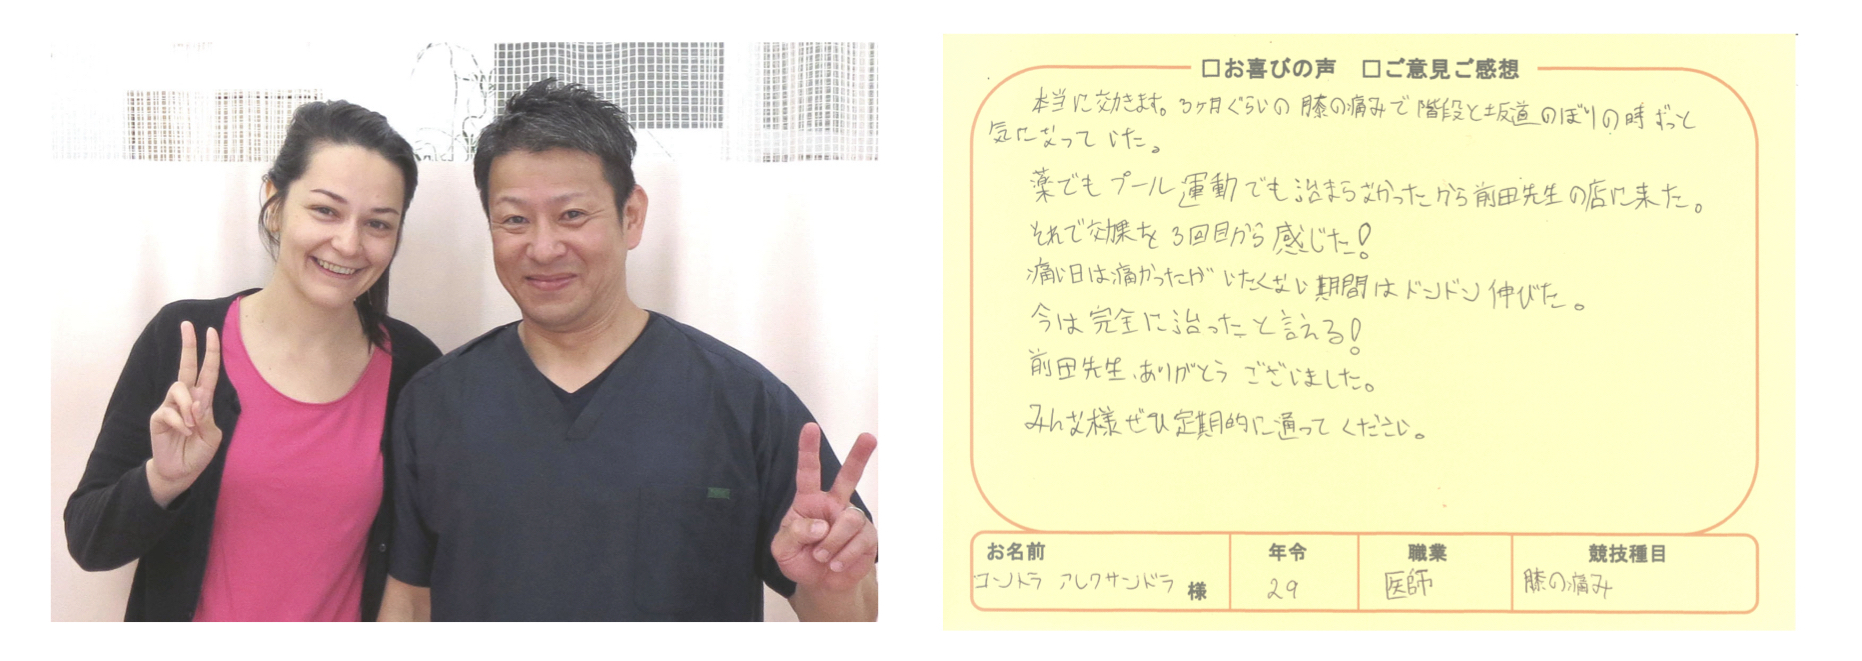 □お喜びの声 □ご意見ご感想
本当に効きます。3ヶ月ぐらいの膝の痛みで階段と坂道のぼりの時ずっと
気になっていた。
薬でもプール運動でも治まらなかったから前田先生の店に来た。
それで効果を3回目から感じた!
痛い日は痛かったがいたくない期間はドンドン伸びた。
今は完全に治ったと言える!
前田先生、ありがとうございました。
みんな様ぜひ定期的に通ってください。
お名前 年令 職業 競技種目
コントラ アレクサンドラ 様 29 医師 膝の痛み